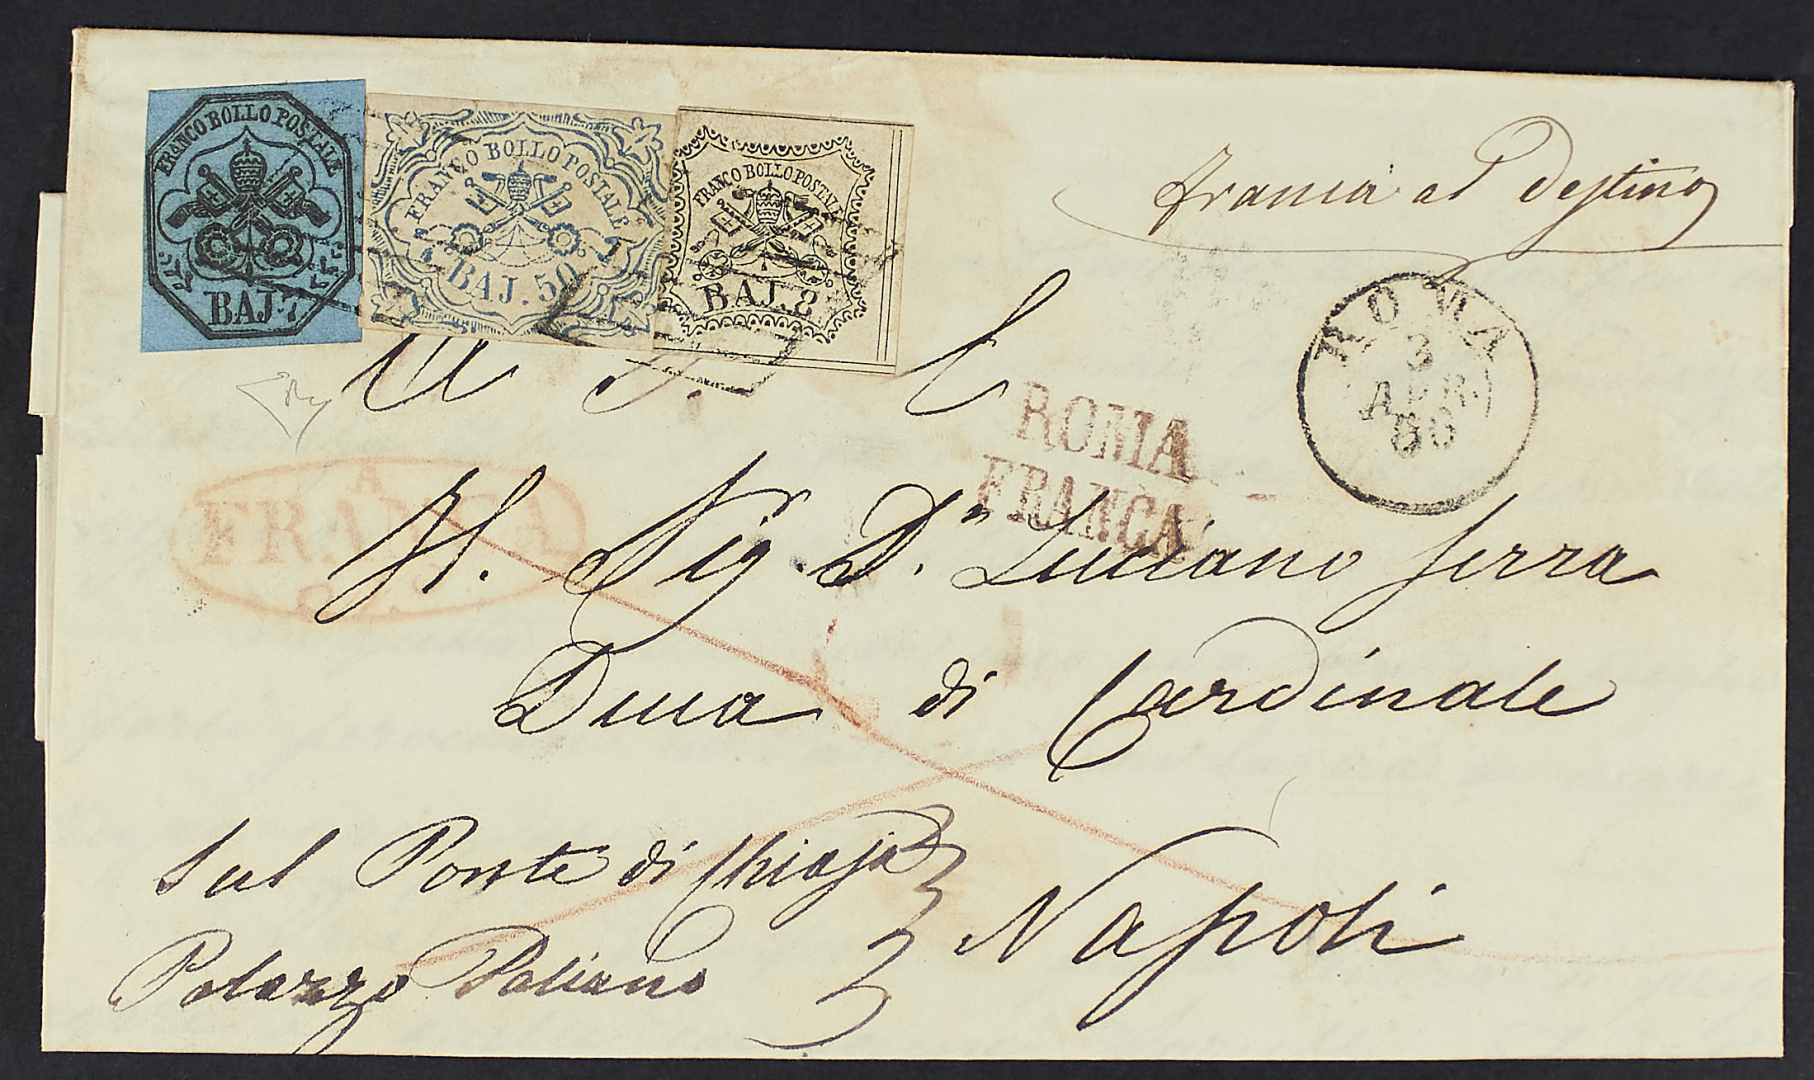 FRANCO BOLLO POSTALE
BAJ. 7
FRANCO BOLLO POSTALE
BAJ. 50
FRANCO BOLLO POSTALE
BAJ. 8
Franca al Destino
ROMA
3
APR.
60
A S. E.
ROMA
FRANCA
A
FRANCA
Il Sig.r D.n Luciano Serra
Duca di Cardinale
Sul Ponte di Chiaja
Napoli
Palazzo Paliano